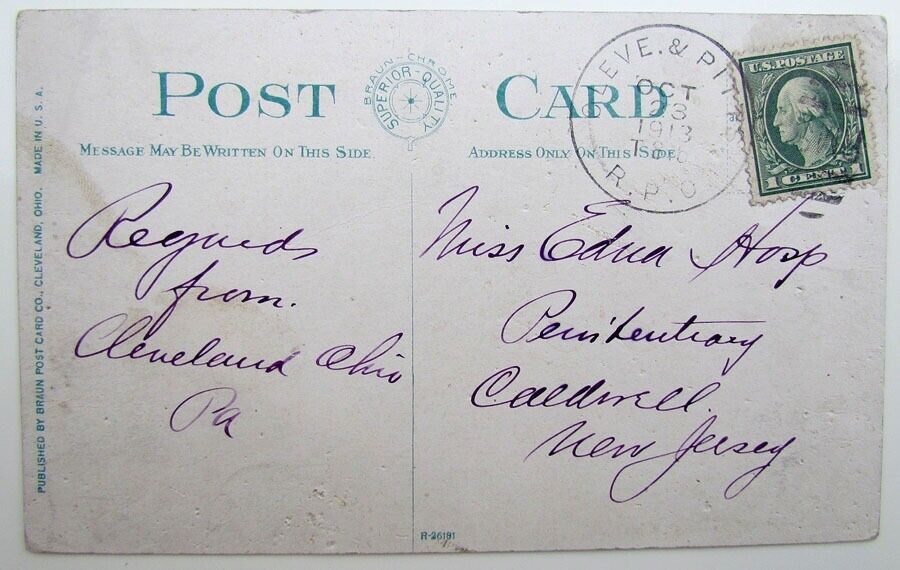 POST CARD
BRAUN-CHROME
SUPERIOR-QUALITY
MESSAGE MAY BE WRITTEN ON THIS SIDE.
ADDRESS ONLY ON THIS SIDE
CLEVE. & PITTS
OCT
28
1913
R.P.O.
U.S. POSTAGE
1 CENT 1
Regards
from.
Cleveland Ohio
Pa
Miss Edna Hosp
Penitentiary
Caldwell
New Jersey
PUBLISHED BY BRAUN POST CARD CO., CLEVELAND, OHIO. MADE IN U.S.A.
R-26191